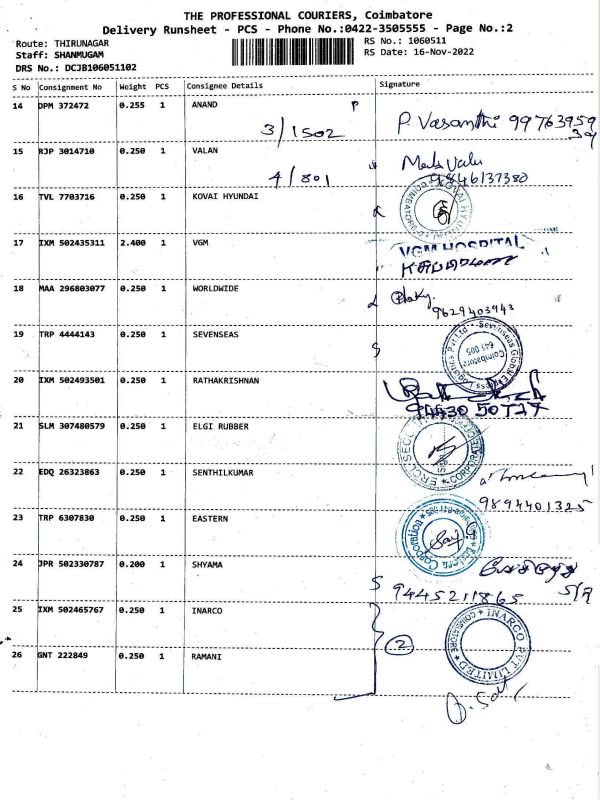 THE PROFESSIONAL COURIERS, Coimbatore
Delivery Runsheet - PCS - Phone No.:0422-3505555 - Page No.:2
Route: THIRUNAGAR
RS No.: 1060511
Staff: SHANMUGAM
RS Date: 16-Nov-2022
DRS No.: DCJB106051102
S No Consignment No Weight PCS Consignee Details Signature
14 DPM 372472 0.255 1 ANAND P
3/1502 P. Vasanthi 99763959
39
15 RJP 3014710 0.250 1 VALAN
4/801 9846137380
16 TVL 7703716 0.250 1 KOVAI HYUNDAI
17 IXM 502435311 2.400 1 VGM
VGM HOSPITAL
18 MAA 296803077 0.250 1 WORLDWIDE
9629403943
19 TRP 4444143 0.250 1 SEVENSEAS
Coimbatore 641 005
20 IXM 502493501 0.250 1 RATHAKRISHNAN
94430 50727
21 SLM 307480579 0.250 1 ELGI RUBBER
22 EDQ 26323863 0.250 1 SENTHILKUMAR
9894401325
23 TRP 6307830 0.250 1 EASTERN
Eastern Corporation
24 JPR 502330787 0.200 1 SHYAMA
S 9445211865
25 IXM 502465767 0.250 1 INARCO
INARCO PVT LIMITED
COIMBATORE
2
26 GNT 222849 0.250 1 RAMANI